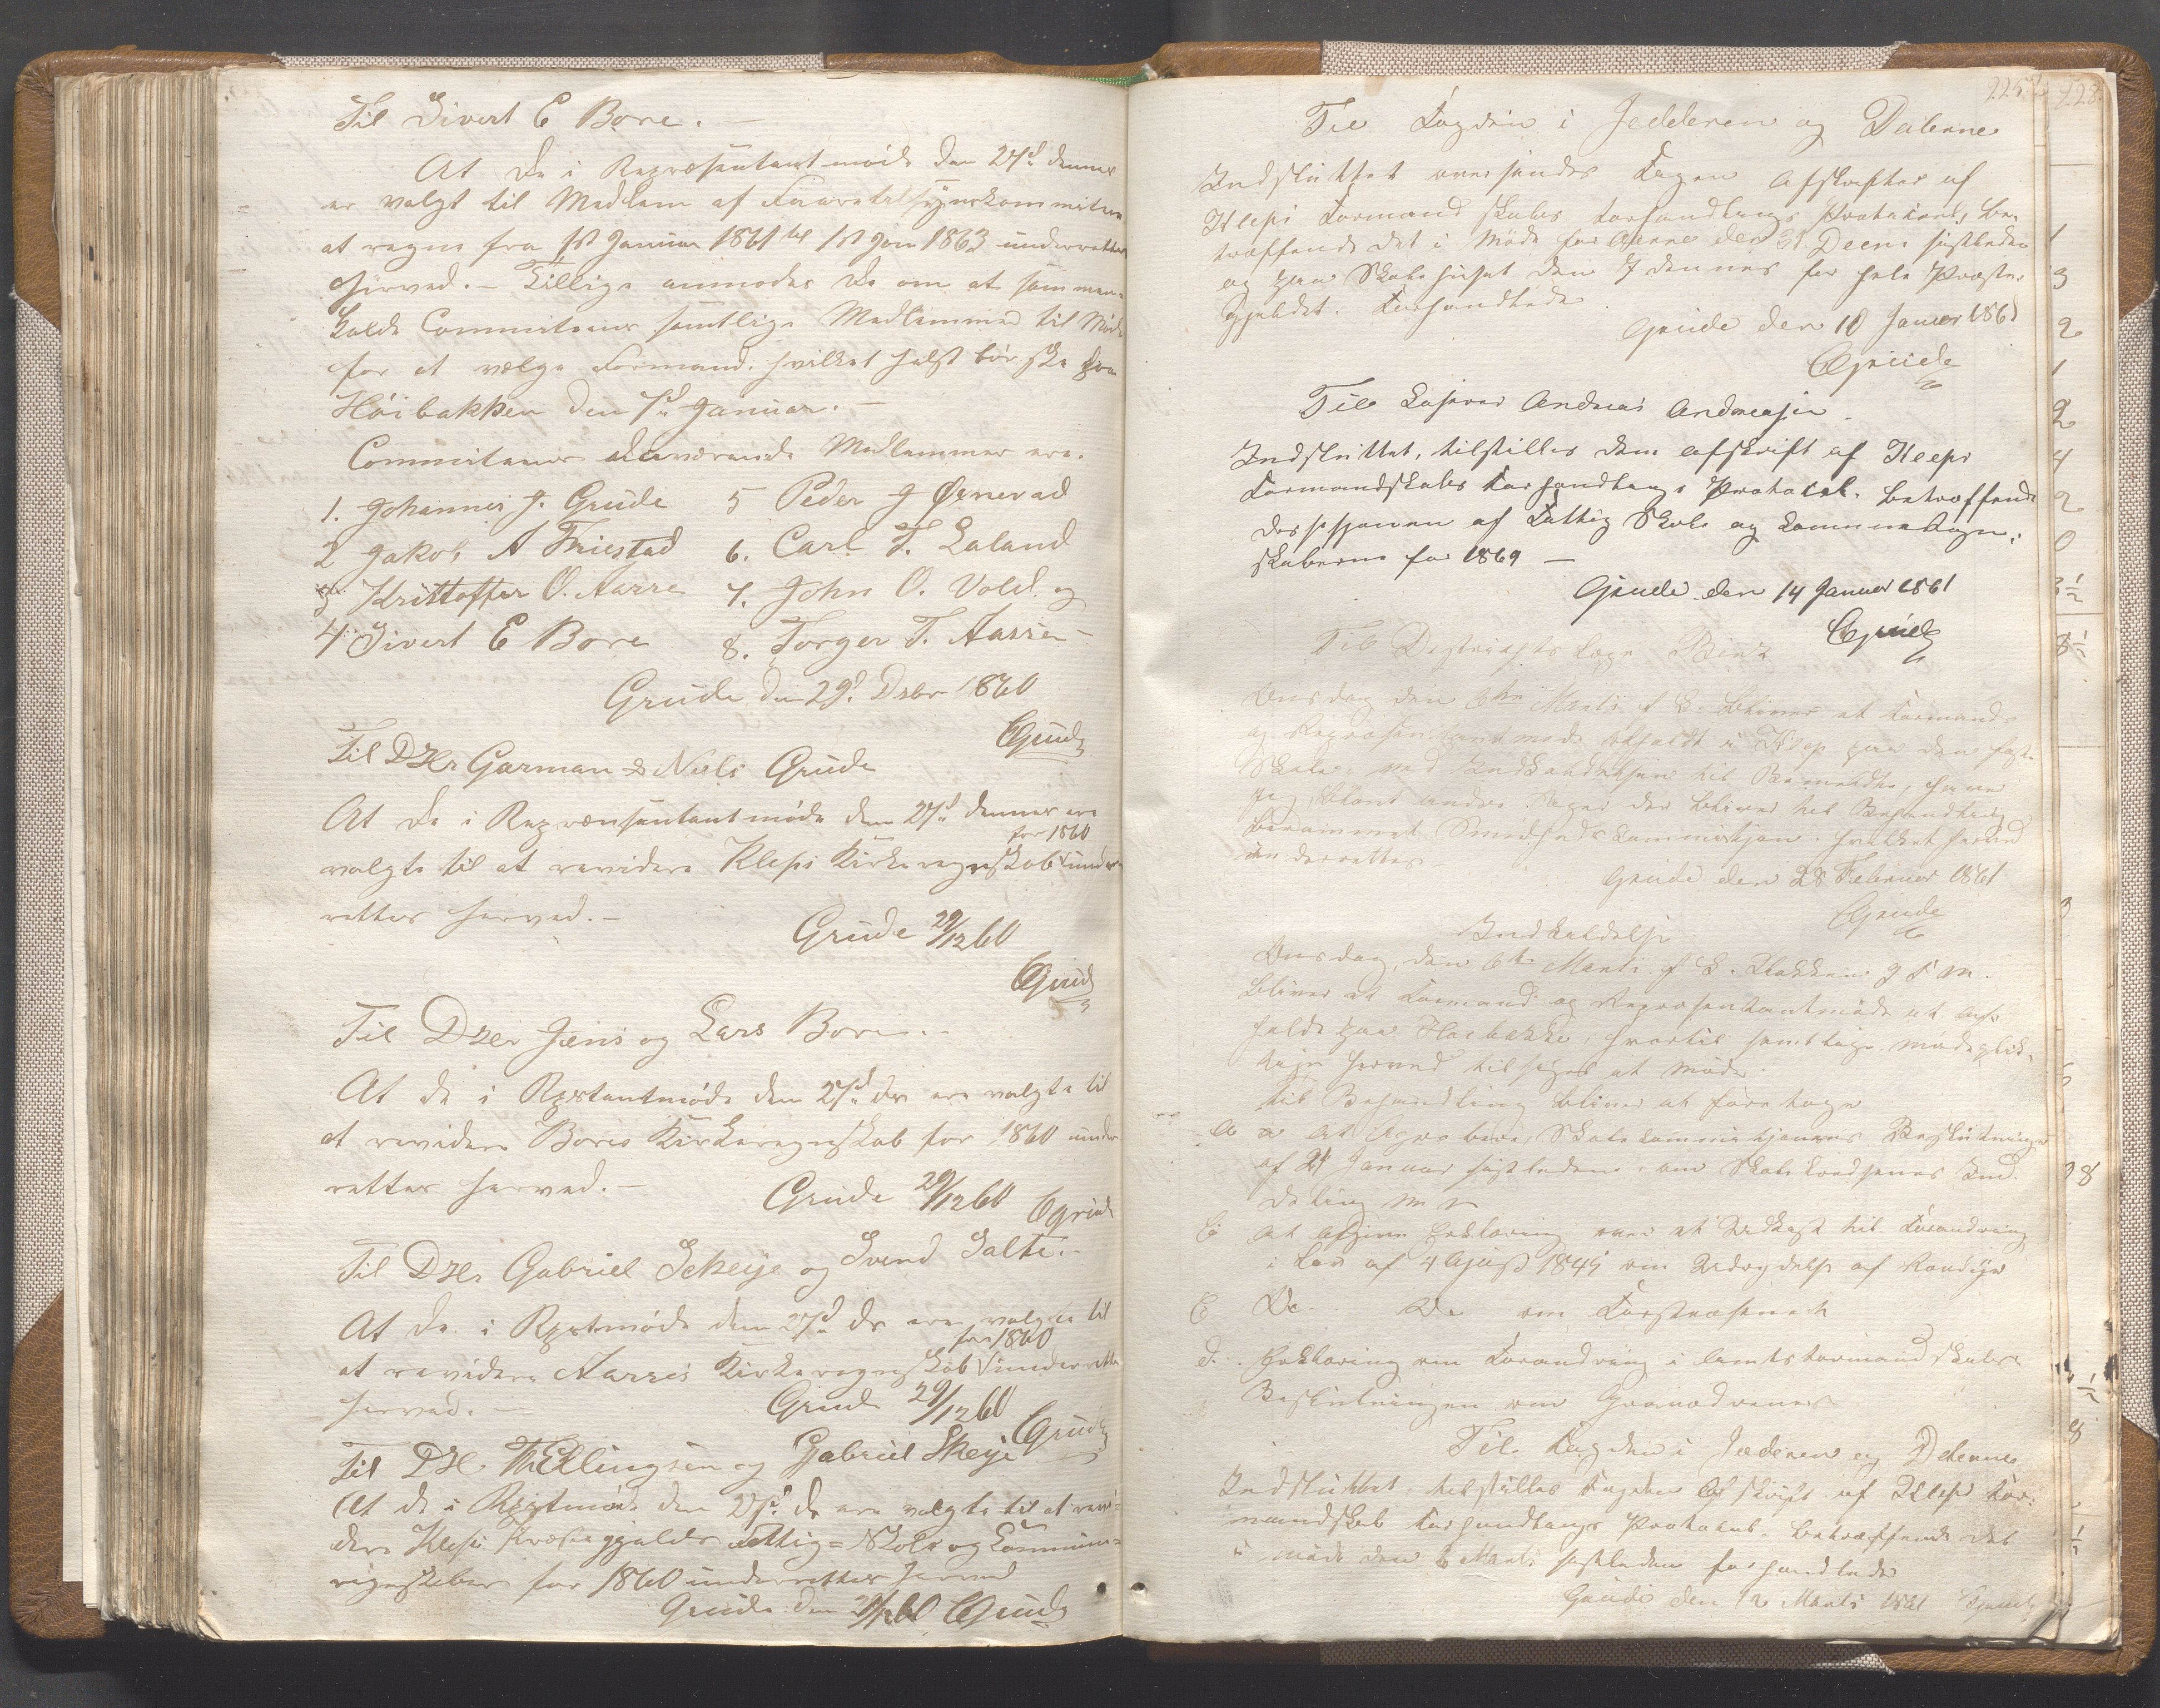 Til Sivert E Bore. —
At De i Repræsentantmøde den 27d dennes
er valgt til Medlem af Faaretilsynskommiteen
at regne fra 1st Januar 1861 til 1st Jan 1863 underrettes
herved. — Tillige anmodes De om at sammen-
kalde Commiteens samtlige Medlemmer til Møde
for at vælge Formand, hvilket helst bør ske paa
Höibakken den 7d Januar. —
Commiteens Medlemmer ere.
1. Johannes J. Grude
2 Jakob A Friestad
3 Kristoffer O. Aarre
4 Sivert E Bore
5 Peder J Øxnevad
6. Carl T. Laland
7. John O. Vold. og
8. Torger T. Aasen —
Grude den 29d Dsbr 1860
EGrude
Til DHr Garman & Niels Grude
At De i Repræsentantmøde den 27d dennes ere
valgte til at revidere Kleps Kirkeregnskab for 1860 under-
rettes herved. —
Grude 29/12 60
EGrude
Til DHrr Jens og Lars Bore. —
At de i Rpstantmøde den 27d ds ere valgte til
at revidere Bores Kirkeregnskab for 1860 under-
rettes herved. —
Grude 29/12 60 EGrude
Til DHr Gabriel Skeije og Svend Salte. —
At De i Rpstmøde den 27d ds ere valgte til
at revidere Aarres Kirkeregnskab for 1860 underrettes
herved. —
Grude 29/12 60
EGrude
Til DH. Th Ellingsen og Gabriel Skeije
At de i Rpstmøde den 27d ds ere valgte til at revi-
dere Klep Præstegjelds Fattig= Skole og Commune=
regnskaber for 1860 underrettes herved
Grude den 29/12 60 EGrude
Til Fogden i Jedderen og Dalerne
Indsluttet oversendes Fogen Afskrifter af
Kleps Formandskabs Forhandlings Protocol, be-
træffende det i Møde for Aarre den 31 Decm sistleden
og paa Skolehuset den 7 dennes for hele Præste-
gjeldet. Forhandlede
Grude den 10 Januar 1861
EGrude
Til Andreas Andreasen.
Indsluttet, tilstilles Dem afskrift af Kleps
Formandskabs Forhandlings Protocol. betræffende
af Fattig Skole og Kommuneregn-
skaberne for 1860 —
Grude den 14 Januar 1861
EGrude
Til Distrigts Læge
Onsdag den 6te Marts f. K. bliver et Formands
og Repræsentant møde afholdt i Klep paa den faste
Skole, ved Indkaldelsen til Bemeldte, haver
jeg, blant andre Sager der bliver til Behandling
berammet Sundhedskommisjon. hvilket herved
underrettes
Grude den 28 Februar 1861
EGrude
Indkaldelse
Onsdag, den 6te Marts f K. Klokken 9 F M.
bliver et Formand og Repræsentantmøde at af-
holde paa Høebakke, hvortil samtlige mødeplik-
tige herved tilsiges at møde.
Til Behandling bliver at foretage
a At Skolekommissjonens Beslutninge
af 21 Januar sistleden, om Skolekredsenes Ind-
deling m v
b At afgive Erklæring over et Udkast til Forandring
i Lov af 4 Agust 1845 om Udrydelse af Rovdyr
C Do. Do om Forstvæsenet
d. Erklæring om Forandring i Amtsformandskabets
Beslutningen om
Til Fogden i Jæderen og Dalerne
Indsluttet, tilstilles Fogden Afskrift af Klep For-
mandskab Forhandlings Protocol. betræffende det
i møde den 6 Marts sistleden forhandlede
Grude den 12 Marts 1861 EGrude